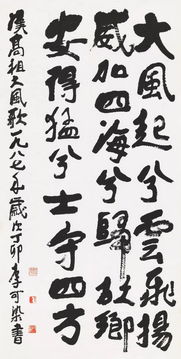 大風起兮雲飛揚
威加四海兮歸故鄉
安得猛兮士守四方
漢高祖大風歌一九八七年歲次丁卯李可染書